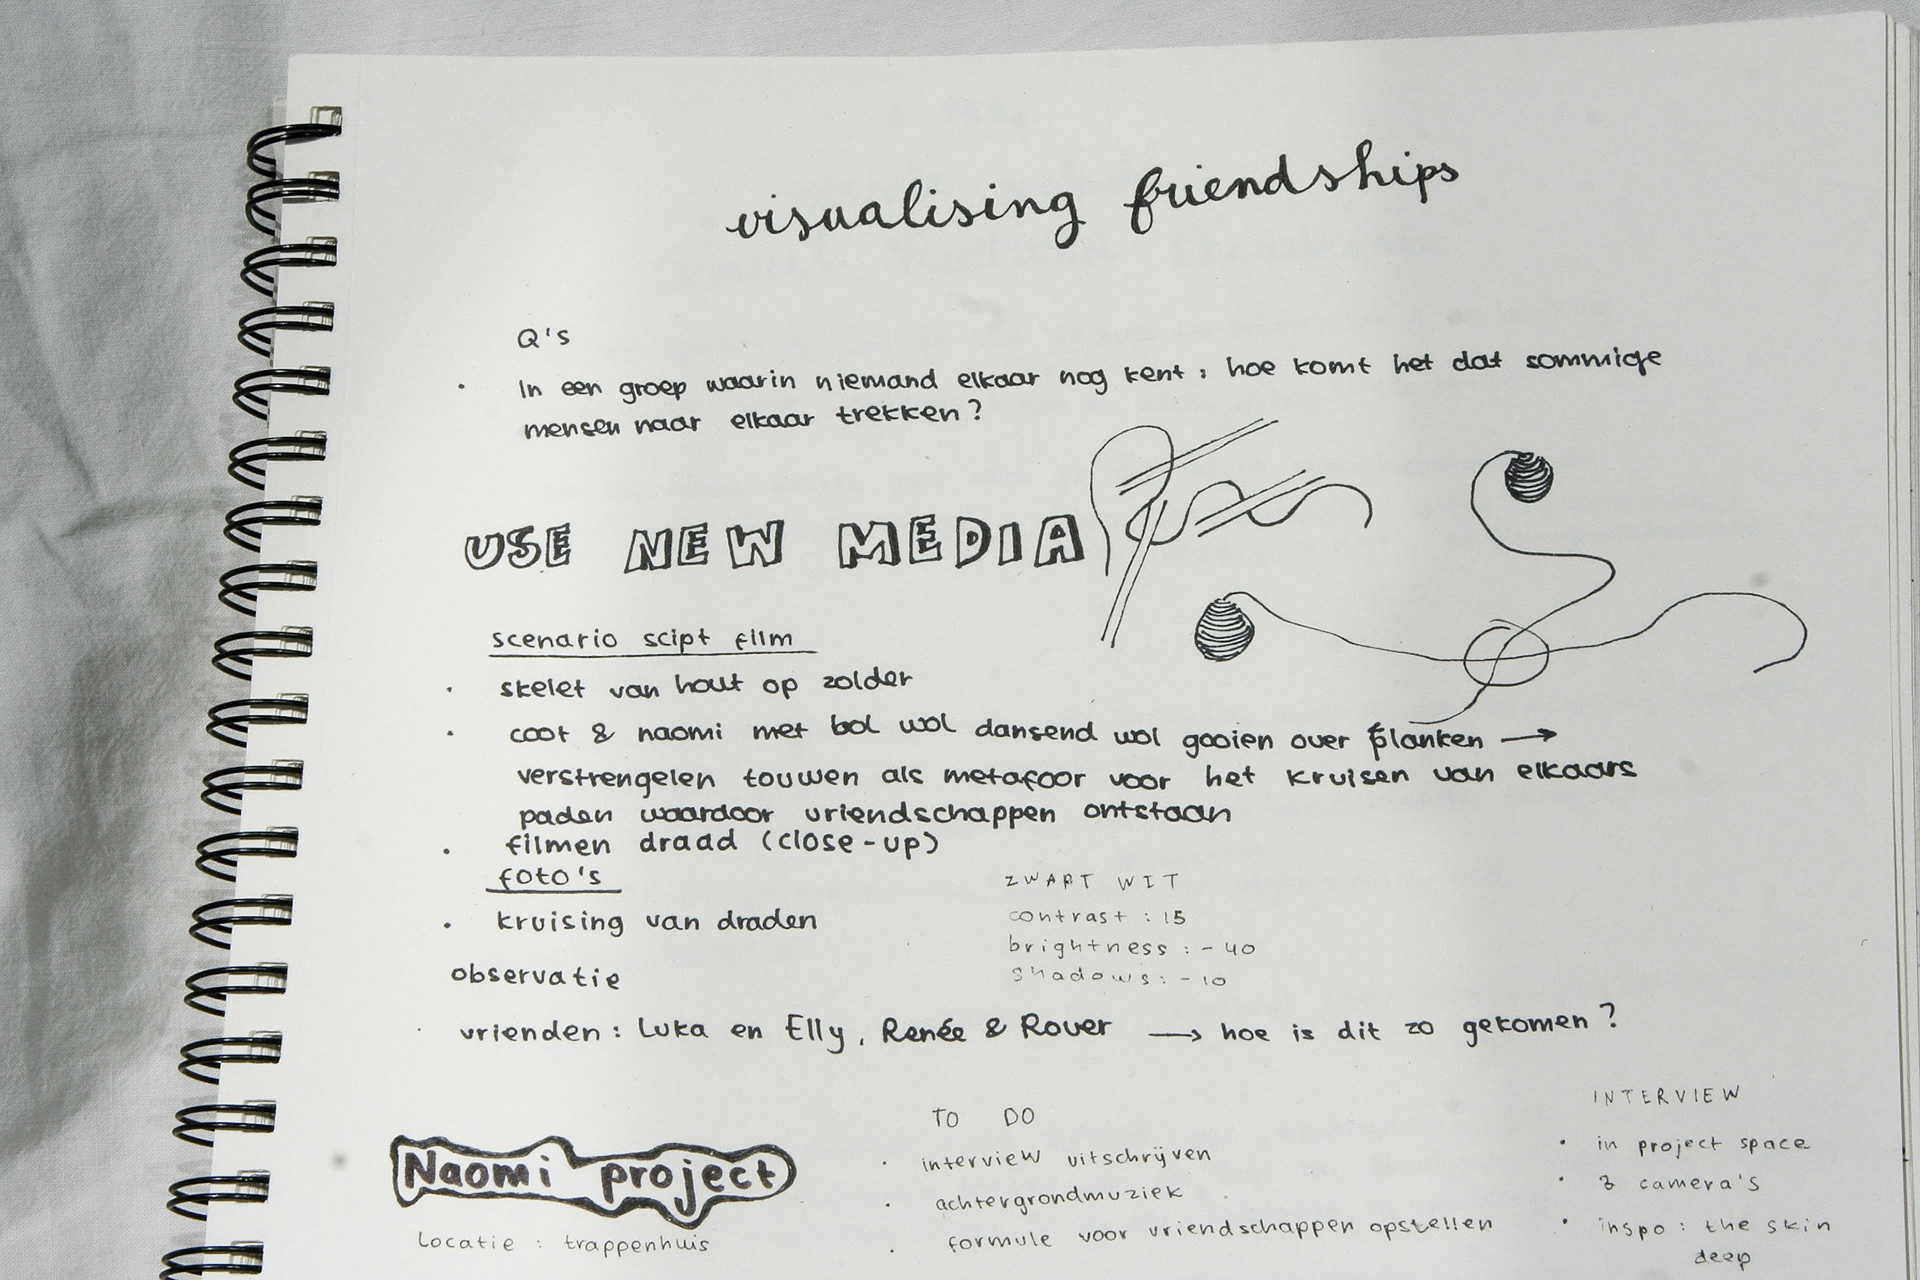 visualising friendships
Q's
· In een groep waarin niemand elkaar nog kent: hoe komt het dat sommige
mensen naar elkaar trekken?
USE NEW MEDIA
scenario scipt film
· skelet van hout op zolder
· coot & naomi met bol wol dansend wol gooien over planken →
verstrengelen touwen als metafoor voor het kruisen van elkaars
paden waardoor vriendschappen ontstaan
· filmen draad (close-up)
foto's
· kruising van draden
ZWART WIT
contrast : 15
brightness : -40
shadows : -10
observatie
· vrienden : Luka en Elly, Renée & Rover → hoe is dit zo gekomen?
Naomi project
Locatie : trappenhuis
TO DO
· interview uitschrijven
· achtergrondmuziek
· formule voor vriendschappen opstellen
INTERVIEW
· in project space
· 3 camera's
· inspo : the skin
deep